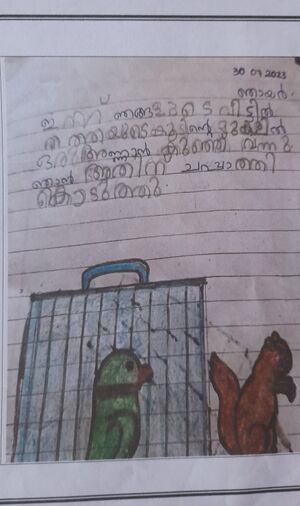 30 07 2023
ഞായർ.
ഇന്ന് ഞങ്ങളുടെ വീട്ടിൽ
തത്തയുടെ കൂടിന്റെ മുകളിൽ
ഒരു അണ്ണാൻ കുഞ്ഞ് വന്നു
ഞാൻ അതിന് ചപ്പാത്തി
കൊടുത്തു.